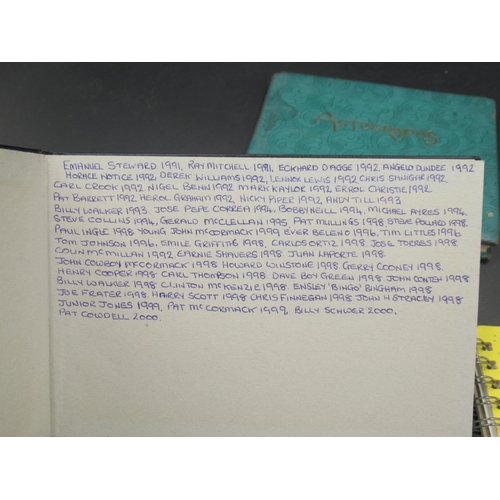 Autographs
EMANUEL STEWARD 1991, RAY MITCHELL 1991, ECKHARD DAGGE 1992, ANGELO DUNDEE 1992
HORACE NOTICE 1992, DEREK WILLIAMS 1992, LENNOX LEWIS 1992 CHRIS 1992,
CARL CROOK 1992, NIGEL BENN 1992 MARK KAYLOR 1992, ERROL CHRISTIE 1992,
PAT BARRETT 1992, HEROL GRAHAM 1992, NICKY PIPER 1992, ANDY TILL 1993
BILLY WALKER 1993, JOSE PEPE CORREA 1994, BOBBY NEILL 1994, MICHAEL AYRES 1994,
STEVE COLLINS 1994, GERALD McCLELLAN 1995 PAT MULLINGS 1998 STEVE POLLARD 1998,
PAUL INGLE 1998 YOUNG JOHN McCORMACK 1999 EVER BELENO 1996, TIM LITTLES 1996
TOM JOHNSON 1996, EMILE GRIFFITH 1998, CARLOS ORTIZ 1998 JOSE TORRES 1998
COLIN McMILLAN 1992, EARNIE SHAVERS 1998 JUAN LAPORTE 1998.
JOHN COWBOY McCORMACK 1998 HOWARD WINSTONE 1998 GERRY COONEY 1998
HENRY COOPER 1998 CARL THOMPSON 1998 DAVE BOY GREEN 1998 JOHN CONTEH 1998
BILLY WALKER 1998 CLINTON McKENZIE 1998. ENSLEY 'BINGO' BINGHAM 1998
JOE FRATER 1998. HARRY SCOTT 1998 CHRIS FINNEGAN 1998 JOHN H STRACEY 1998
JUNIOR JONES 1999, PAT McCORMACK 1999, BILLY SCHWER 2000,
PAT COWDELL 2000.